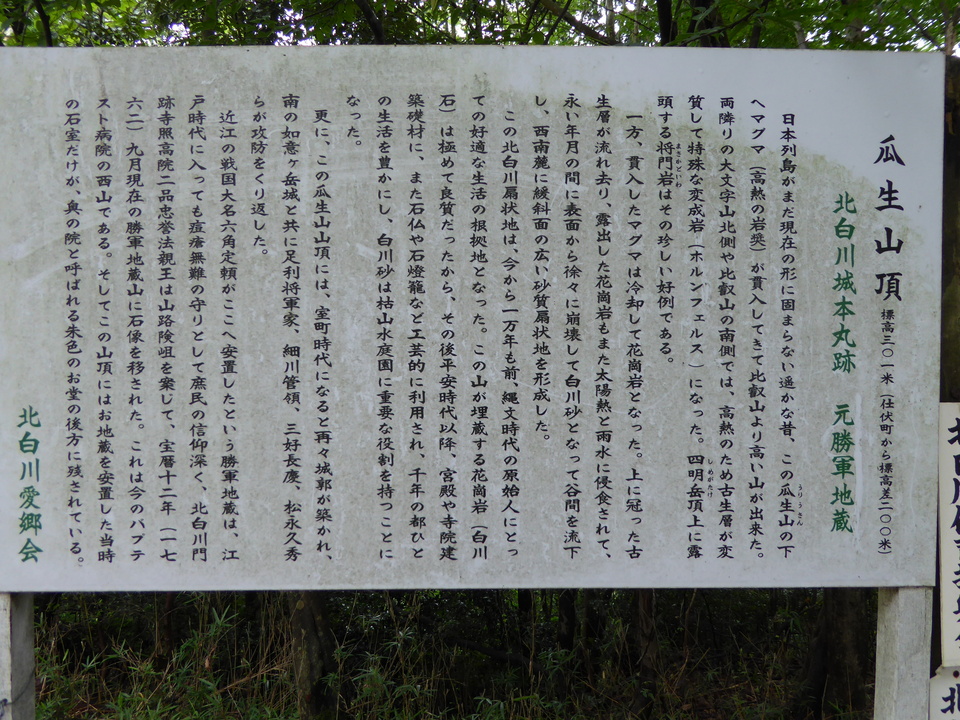 瓜生山頂 標高三〇一米（仕伏町から標高差二〇〇米）
北白川城本丸跡 元勝軍地蔵
日本列島がまだ現在の形に固まらない遥かな昔、この瓜生山の下
うりうさん
へマグマ（高熱の岩奨）が貫入してきて比叡山より高い山が出来た。
両隣りの大文字山北側や比叡山の南側では、高熱のため古生層が変
質して特殊な変成岩（ホルンフェルス）になった。四明岳頂上に露
しめがたけ
頭する将門岩はその珍しい好例である。
まさかどいわ
一方、貫入したマグマは冷却して花崗岩となった。上に冠った古
生層が流れ去り、露出した花崗岩もまた太陽熱と雨水に侵食されて、
永い年月の間に表面から徐々に崩壊して白川砂となって谷間を流下
し、西南麓に緩斜面の広い砂質扇状地を形成した。
この北白川扇状地は、今から一万年も前、縄文時代の原始人にとっ
ての好適な生活の根拠地となった。この山が埋蔵する花崗岩（白川
石）は極めて良質だったから、その後平安時代以降、宮殿や寺院建
築礎材に、また石仏や石燈籠など工芸的に利用され、千年の都ひと
の生活を豊かにし、白川砂は枯山水庭園に重要な役割を持つことに
なった。
更に、この瓜生山山頂には、室町時代になると再々城郭が築かれ、
南の如意ヶ岳城と共に足利将軍家、細川管領、三好長慶、松永久秀
らが攻防をくり返した。
近江の戦国大名六角定頼がここへ安置したという勝軍地蔵は、江
戸時代に入っても痘瘡無難の守りとして庶民の信仰深く、北白川門
跡寺照高院二品忠誉法親王は山路険岨を案じて、宝暦十二年（一七
六二）九月現在の勝軍地蔵山に石像を移された。これは今のバプテ
スト病院の西山である。そしてこの山頂にはお地蔵を安置した当時
の石室だけが、奥の院と呼ばれる朱色のお堂の後方に残されている。
北白川愛郷会